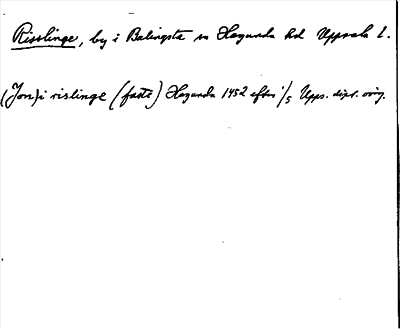 Risslinge, by i Balingsta sn Hagunda hd Uppsala l.
(Jon) i rislinge (faste) Hagunda 1452 efter 1/5 Upps. dipl. orig.